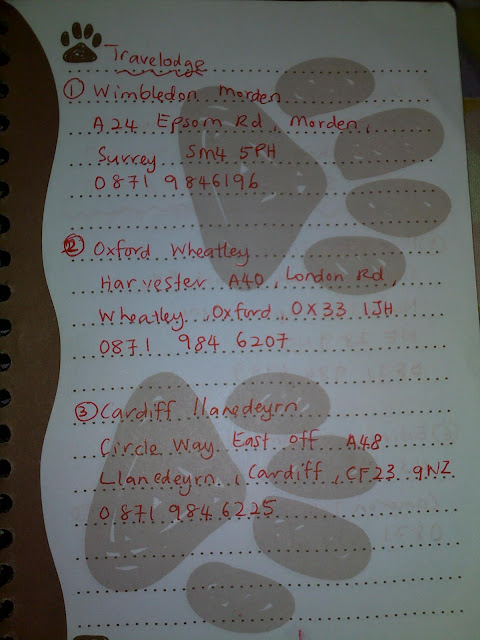 Travelodge
① Wimbledon Morden
A24 Epsom Rd, Morden,
Surrey SM4 5PH
0871 9846196
② Oxford Wheatley
Harvester A40, London Rd,
Wheatley, Oxford, OX33 1JH
0871 984 6207
③ Cardiff llanedeyrn
Circle Way East off A48
Llanedeyrn, Cardiff, CF23 9NZ
0871 984 6225